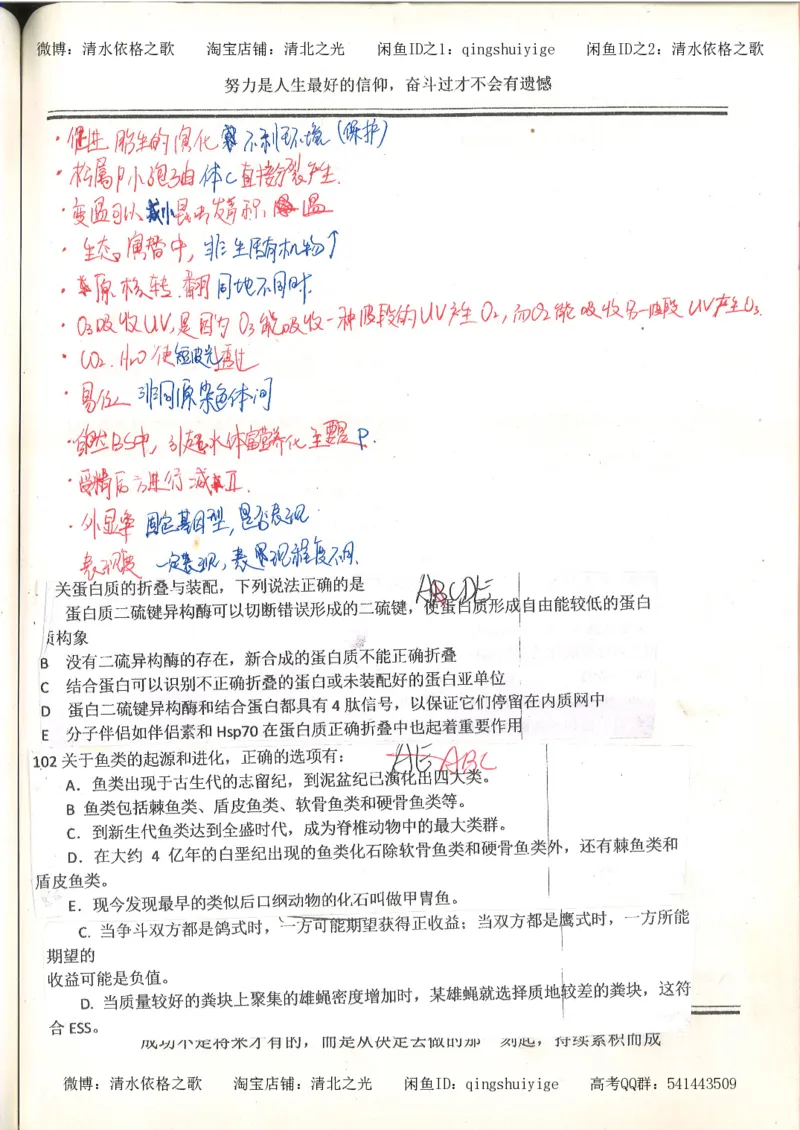 微博：清水依格之歌 淘宝店铺：清北之光 闲鱼ID之1：qingshuiyige 闲鱼ID之2：清水依格之歌
努力是人生最好的信仰，奋斗过才不会有遗憾
·促进胎生的演化 不利环境（保护）
·松属♂小孢子由体C直接分裂产生.
·变温可以减小昆虫发育积温
·生态演替中，非生质有机物↑
·原核转.翻 同地不同时.
·O₃吸收UV,是因为O₃能吸收一种波段的UV产生O₂,而O₂能吸收另一波段UV产生O₃.
·CO₂.H₂O使短波光透过
·易位 非同源染色体间
·自然BS中，引起水体富营养化主要是P.
·受精后方进行减Ⅱ.
·外显率 固定基因型，是否表现
表现度 一定表现，表现程度不同.
关蛋白质的折叠与装配，下列说法正确的是 ABCDE
蛋白质二硫键异构酶可以切断错误形成的二硫键，使蛋白质形成自由能较低的蛋白
质构象
B 没有二硫异构酶的存在，新合成的蛋白质不能正确折叠
C 结合蛋白可以识别不正确折叠的蛋白或未装配好的蛋白亚单位
D 蛋白二硫键异构酶和结合蛋白都具有 4 肽信号，以保证它们停留在内质网中
E 分子伴侣如伴侣素和 Hsp70 在蛋白质正确折叠中也起着重要作用
102 关于鱼类的起源和进化，正确的选项有： AE ABC
A．鱼类出现于古生代的志留纪，到泥盆纪已演化出四大类。
B 鱼类包括棘鱼类、盾皮鱼类、软骨鱼类和硬骨鱼类等。
C．到新生代鱼类达到全盛时代，成为脊椎动物中的最大类群。
D．在大约 4 亿年的白垩纪出现的鱼类化石除软骨鱼类和硬骨鱼类外，还有棘鱼类和
盾皮鱼类。
E．现今发现最早的类似后口纲动物的化石叫做甲胄鱼。
C. 当争斗双方都是鸽式时，一方可能期望获得正收益；当双方都是鹰式时，一方所能
期望的
收益可能是负值。
D. 当质量较好的粪块上聚集的雄蝇密度增加时，某雄蝇就选择质地较差的粪块，这符
合 ESS。
成功不是将来才有的，而是从决定去做的那一刻起，持续累积而成
微博：清水依格之歌 淘宝店铺：清北之光 闲鱼ID：qingshuiyige 高考QQ群：541443509